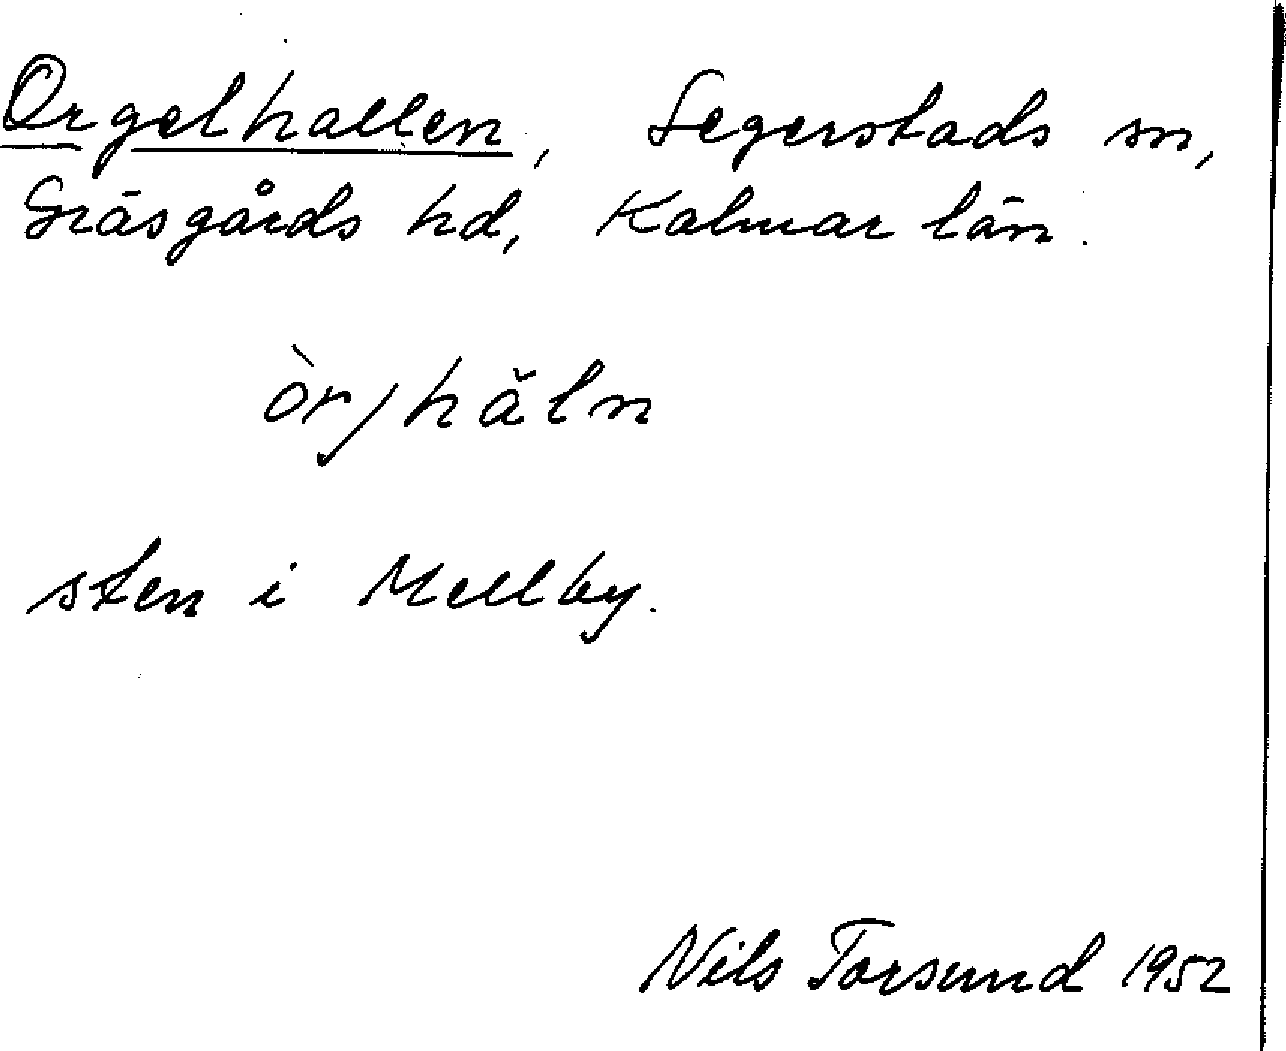 Orgelhallen, Segerstads sn,
Gräsgårds hd, Kalmar län.
òrjhăln
sten i Mellby.
Nils Torsund 1952